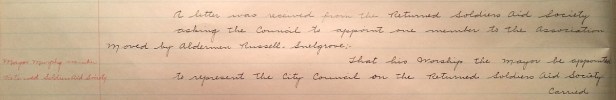 A letter was received from the Returned Soldiers Aid Society
asking the Council to appoint one member to the Association
Moved by Aldermen Russell. Snelgrove;-
That his Worship the Mayor be appointed
to represent the City Council on the Returned Soldiers Aid Society
Carried
Mayor Murphy member
Returned Soldiers Aid Society